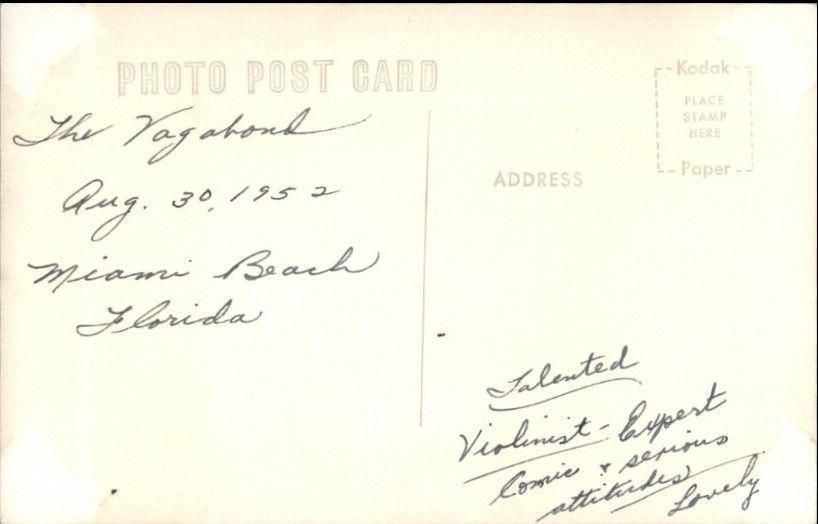 PHOTO POST CARD
Kodak
PLACE
STAMP
HERE
Paper
ADDRESS
The Vagabond
Aug. 30, 1952
Miami Beach
Florida
Talented
Violinist - Expert
Comic & serious
attitudes
Lovely